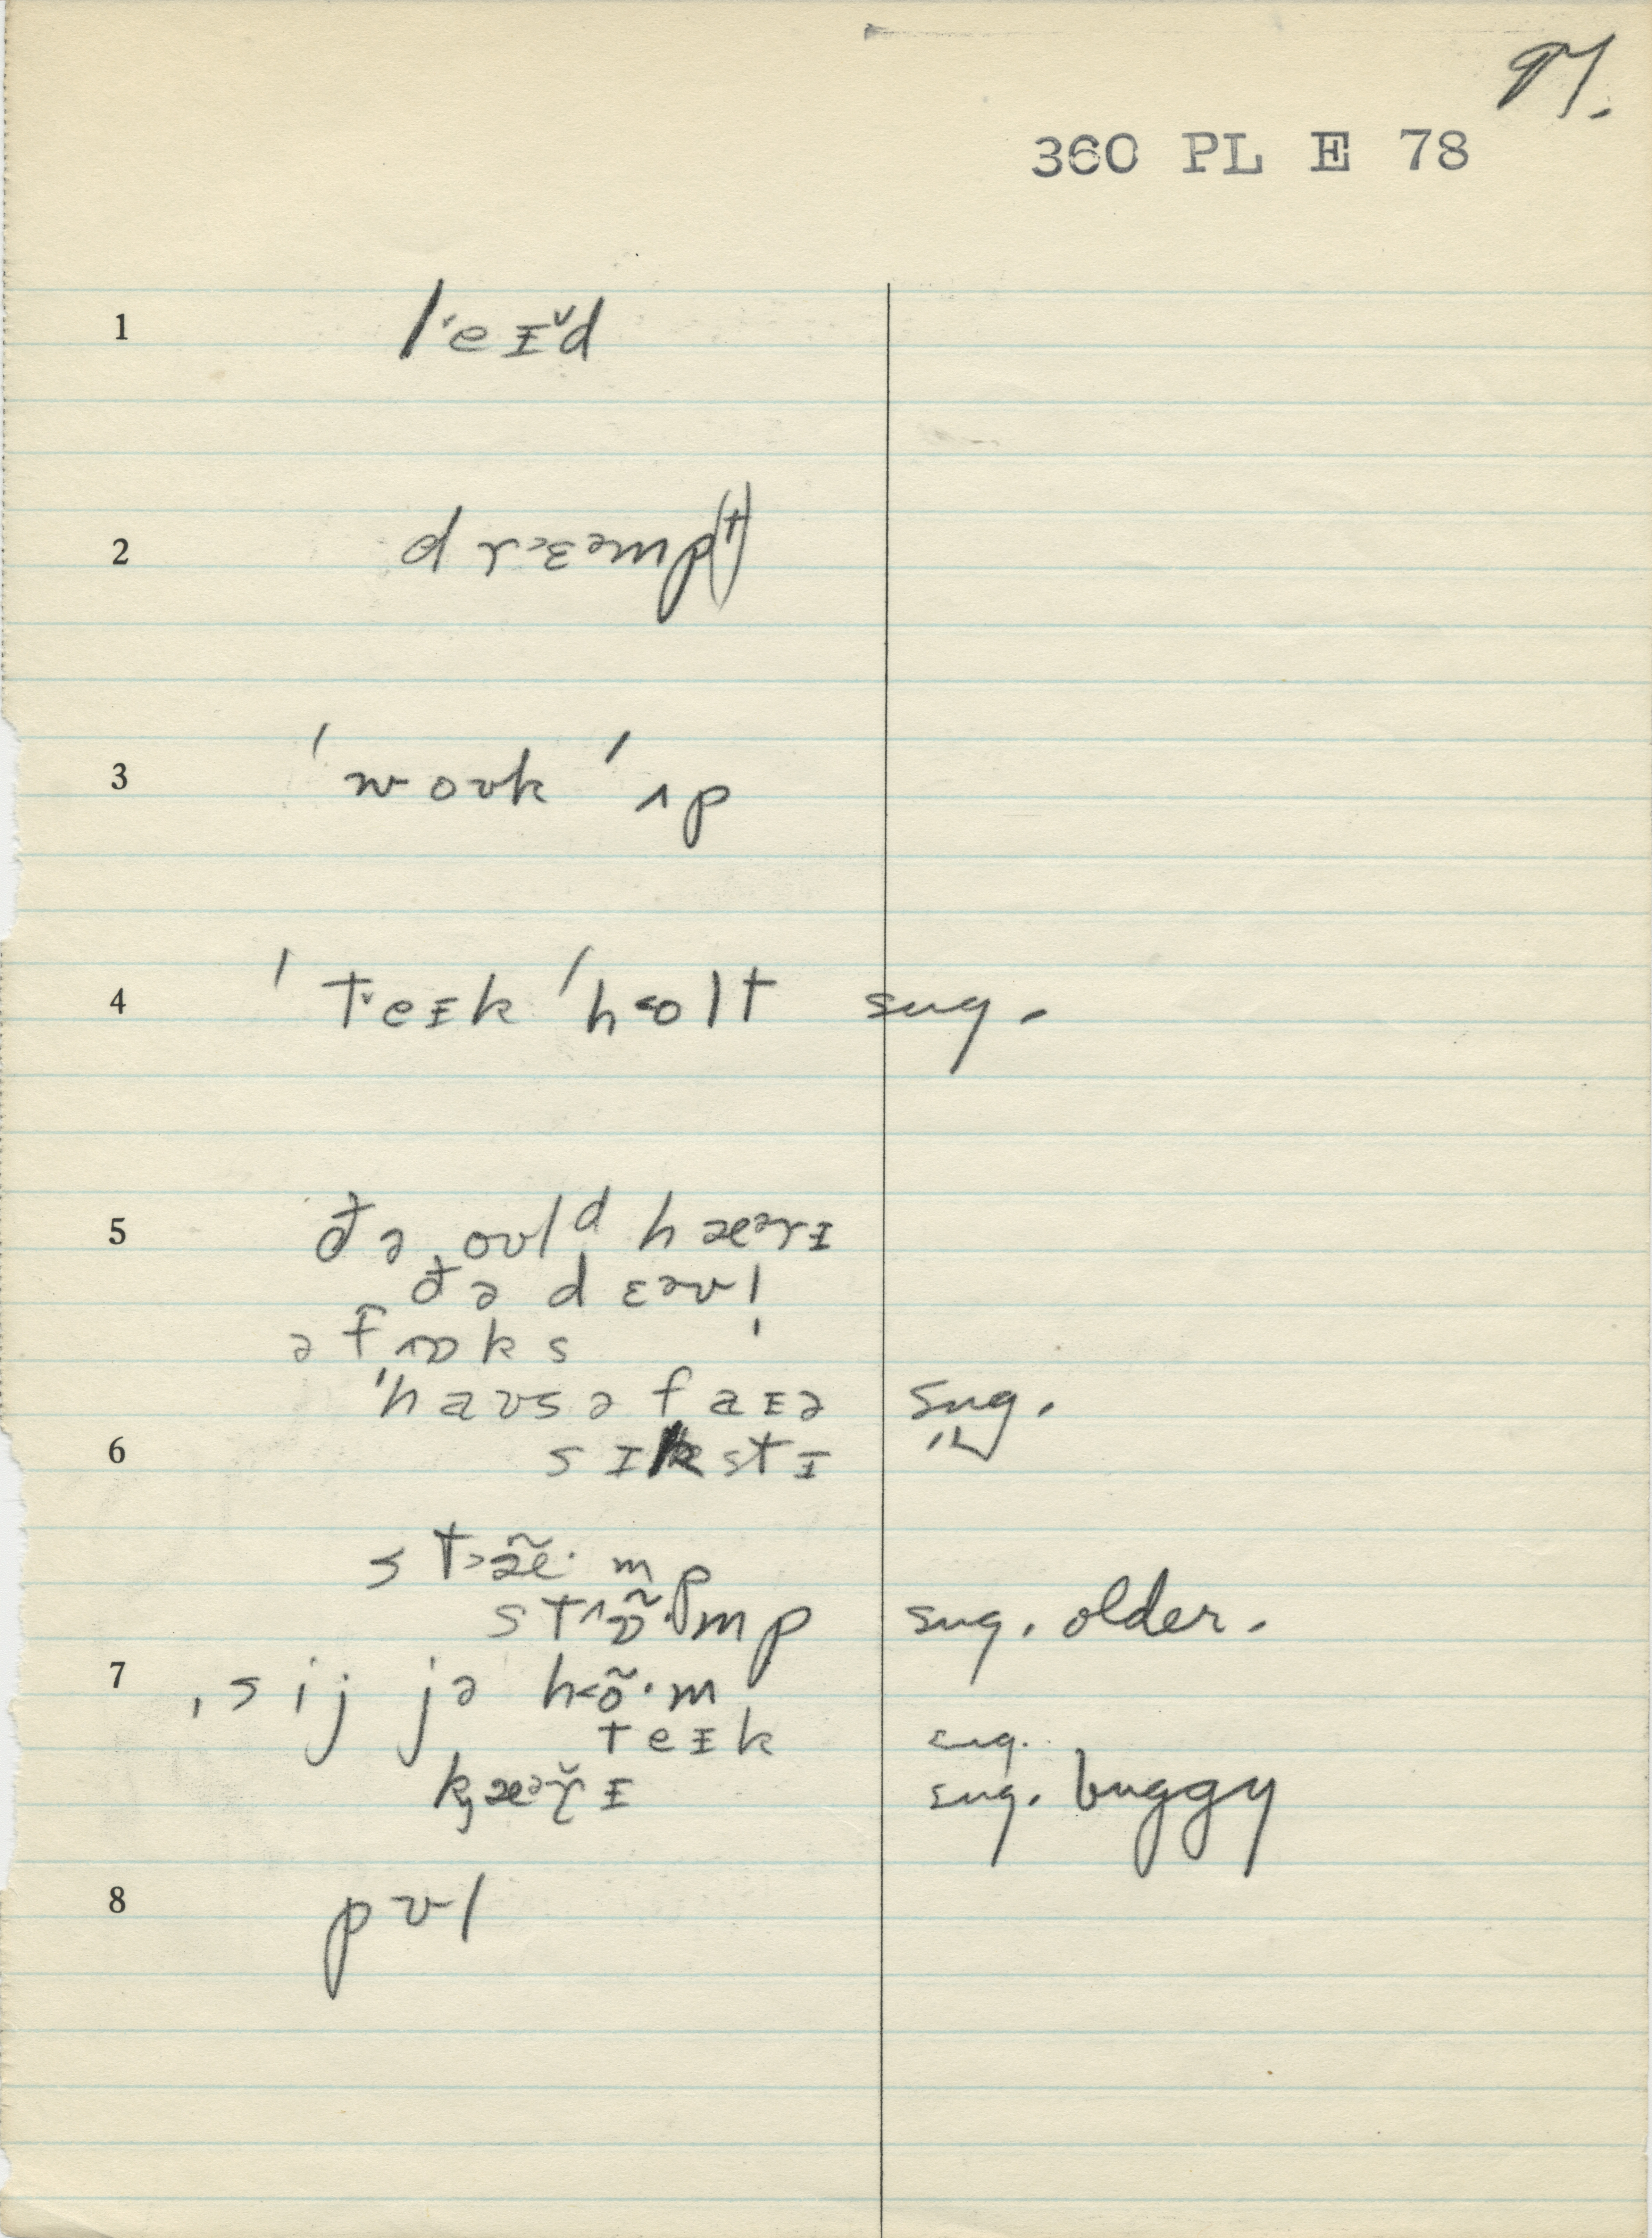 97.
360 PL E 78
1 l˅eɪ̆d
2 drɛ˂ᵊmp(t)
3 ˈwoʊk ˈʌp
4 ˈt˅eɪk ˈh˂olt sug.
5 ðə ˌoʊlᵈ hæᵊrɪ
ðə dɛəʊl
ə fʌɒks
ˈhaʊs ə faɪə sug.
6 sɪkstɪ
st˃æ̃·mp
stʌɒ̃·mp sug. older.
7 ˌsij jə h˂õ·m
teɪk sug.
kæᵊrɪ sug. buggy
8 pʊl